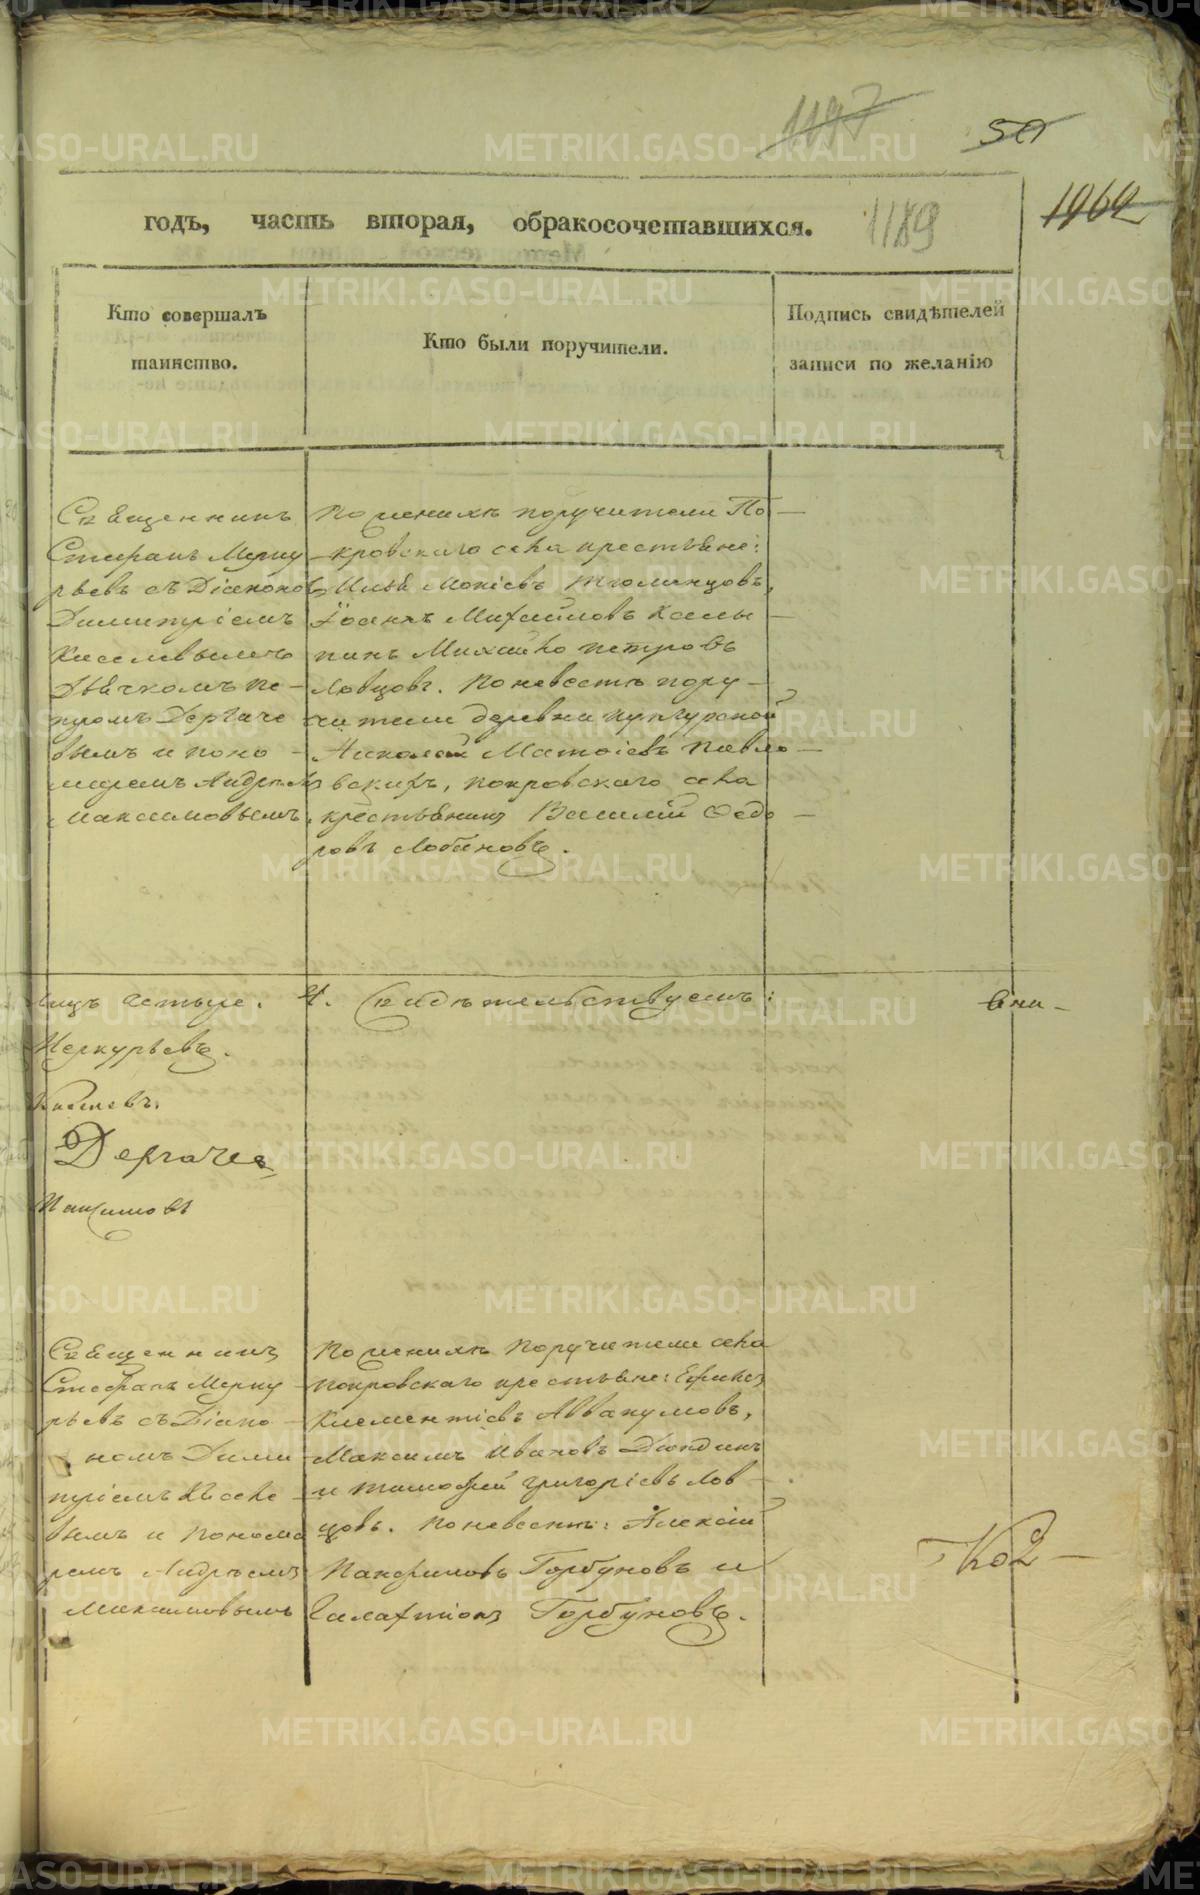 1197
50
1189
1969
годъ, часть вторая, обракосочетавшихся.
Кто совершалъ
таинство.
Кто были поручители.
Подпись свидѣтелей
записи по желанію
Священникъ
Стефанъ Мерку
рьевъ съ Діаконо
Димитріемъ
Киселевымъ
Дьячкомъ Пе-
тромъ Дергаче
вымъ и Поно-
маремъ Андреемъ
Максимовымъ.
По женихѣ поручители По-
кровскаго села крестьяне:
Илья Мокіевъ Тюменцовъ,
Іоаннъ Михайловъ
Михайло Петровъ
Ловцовъ. По невестѣ пору-
чители деревни
Николай Павло-
вскихъ, Покровскаго села
крестьянинъ Василій Ѳедо-
ровъ Лобановъ.
четыре. 4. Свидѣтельствуемъ:
Меркурьевъ.
Киселевъ.
Дергачев
Максимовъ
Священникъ
Стефанъ Мерку
рьевъ съ Діако-
номъ Дими
тріемъ Киселе
вымъ и Понома
ремъ Андреемъ
Максимовымъ
По женихѣ Поручители села
Покровскаго крестьяне:
Клементіевъ Аввакумовъ,
Максимъ Ивановъ Дюндинъ
и Тимофей Григоріевъ Лов-
цовъ. По невестѣ: Алексій
Панфиловъ Горбуновъ и
Галактіонъ Горбуновъ.
METRIKI.GASO-URAL.RU